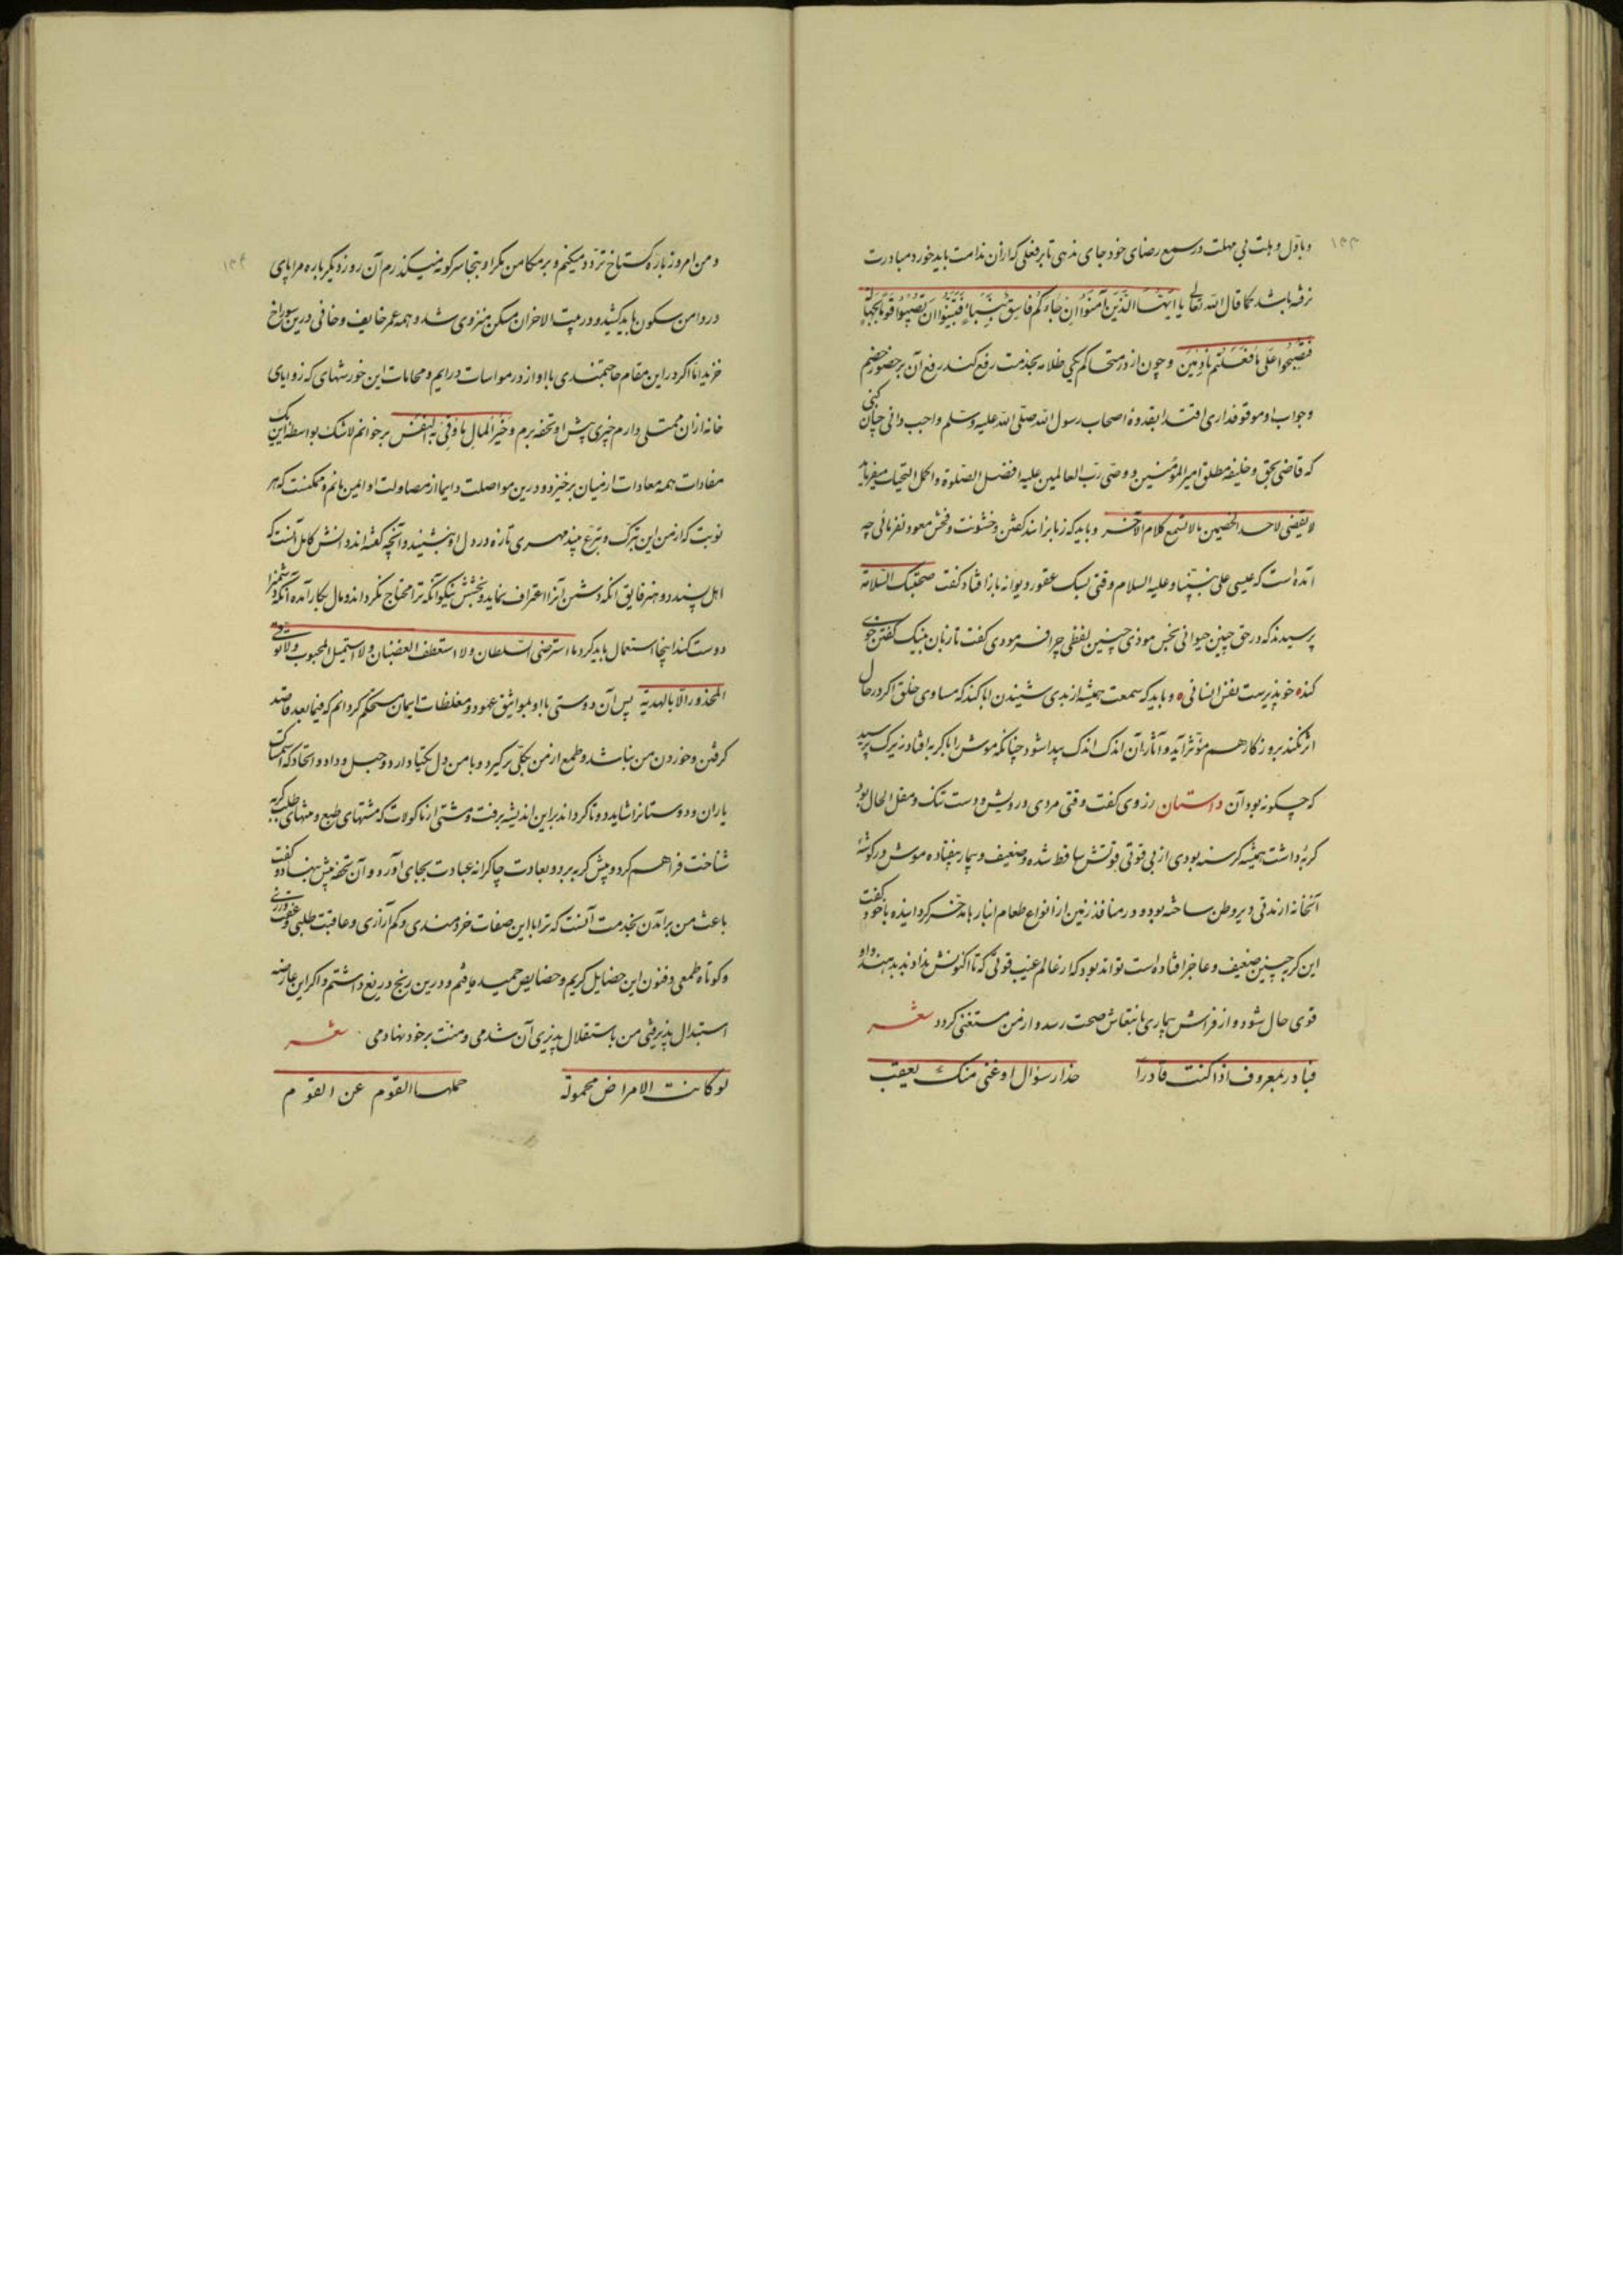 ۱۳۳
و باوّل وهلت بی مهلت در سمع رضای خود جای ندهی تا بر فعلی که ازان ندامت باید خورد مبادرت
نرفته باشد کما قال الله تعالی یا ایّها الذّین آمنوا ان جاءکم فاسق بنباء فتبیّنوا ان تصیبوا قوما بجهالة
فتصبحوا علی ما فعلتم نادمین و چون از دو متحاکم یکی ظلامه بخدمت رفع کند رفع آن بر حضور خصم
و جواب او موقوف داری اقتدا بقدوهٔ اصحاب رسول الله صلّی الله علیه وسلّم واجب دانی چنان کنی
که قاضی بحق و خلیفه مطلق امیر المؤمنین و وصّی ربّ العالمین علیه افضل الصّلوة و اکمل التحیات میفرماید
لا یقضی لاحد الخصمین مالا یسمع کلام الآخر و باید که زبانرا سند گفتن و خشونت و فحش معوود نفرمائی چه
آمده است که عیسی علی نبیّنا و علیه السلام وقتی بسگ عقور دیوانه باز افتاد گفت صحبتک السّلامة
پرسیدند که در حق چنین حیوانی نجس موذی چنین لفظی چرا فرمودی گفت تا زبان بنیک گفتن خوی
کند ه خوپذیرست نفس انسانی ه و باید که سمعت همیشه از بدی شنیدن ابا کند که مساوی خلق اگر در حال
اثر نکند بروزگار هم مؤثر آید و آثار آن اندک اندک پیدا شود چنانکه موش را با گربه افتاد زیرک پرسید
که چگونه بود آن داستان زروی گفت وقتی مردی درویش و دست تنگ و مقل الحال بود
گربهٔ داشت همیشه گرسنه بودی از بی قوتی قوتش ساقط شده و ضعیف و بیمار بیفتاده موش در گوشهٔ
آنخانه از مدتی دیر وطن ساخته بود و در منافذ زمین از انواع طعام انبارها مدّخر گردانیده با خود گفت
این گربه چنین ضعیف و عاجز افتاده است تواند بود که از عالم غیب قوتی که تا اکنونش نداد ند بدهند و او
قوی حال شود و از فراش بیماری بانتعاش صحت رسد و از من مستغنی گردد شعر
فبادر بمعروف اذا کنت قادراً حذار سؤال او غنی منک یعقب
۱۳۴
و من امروز باره گستاخ تردّد میکنم و بر مکامن مکر او بتجاسر گونه میگذرم آن روز دیگر باره مرا پای
در دامن سکون باید کشید و در بیت الاحزان مسکن منزوی شد و همه عمر خایف و خافی درین سوراخ
خزید امّا اگر در این مقام حاجتمندی با او از در مواسات درایم و محامات این خورشهای که زوایای
خانه ازان ممتلی دارم چیزی پیش او تحفه برم و خیر المال ما وقی به النفس بر خوانم لاشک بواسطهٔ این یک
مفادات همه معادات از میان برخیزد و درین مواصلت دایما از مصاولت او ایمن مانم و ممکنست که هر
نوبت که از من این تبرک و تبرّع بیند مهری تازه در دل او بنشیند و آنچه گفته اند دانش کامل آنست که
اهل پسندد و هنر فایق آنکه دشمن آنرا اعتراف نماید و بخشش نیکو آنکه ترا محتاج نگرداند و مال بکار آمده آنکه دشمنرا
دوست کند اینجا استعمال باید کرد ما استرضی السّلطان ولا استعطف الغضبان ولا استمیل المحبوب ولا توقّی
المحذور الّا بالهدیّة پس آن دوستی با او بمواثیق عهود و مغلظات ایمان مستحکم گردانم که فیما بعد قاصد
گرفتن و خوردن من نباشد و طمع از من بکلّی برگیرد و با من دل یکتا دارد و حبل وداد و اتحاد که استمساک
یاران و دوستانرا شاید دوتا گرداند برین اندیشه برفت و مشتی از ماکولات که مشتهای طبع و منتهای طلب گربه
شناخت فراهم کرد و پیش گربه برد و بعادت چاکرانه عیادت بجای آورد و آن تحفه پیش نهاد و گفت
باعث من برآمدن بخدمت آنست که ترا با این صفات خردمندی و کم آزاری و عاقبت طلبی و عفّت ورزی
و کوتاه طمعی و فنون این خصایل کریم و خصایص حمید یافتم و درین رنج دریغ داشتم و اگر این عارضه
استبدال پذیرفتی من باستقلال پذیری آن شدمی و منّت بر خود نهادمی شعر
لو کانت الامراض محمولة حملها القوم عن القوم